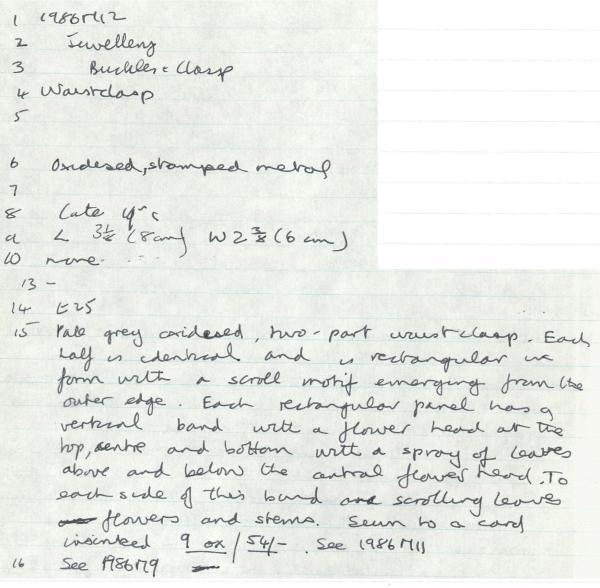 1 1986M12
2 Jewellery
3 Buckles + Clasp
4 Waistclasp
5
6 Oxidesed, stamped metal
7
8 Late 19th c
9 L 3⅛ (8cm) W 2⅜ (6 cm)
10 none
13 -
14 £25
15 Pale grey oxidesed, two-part waistclasp. Each
half is identical and is rectangular in
form with a scroll motif emerging from the
outer edge. Each rectangular panel has a
vertical band with a flower head at the
top, centre and bottom with a spray of leaves
above and below the central flower head. To
each side of this band are scrolling leaves
flowers and stems. Sewn to a card
inscribed 9 ox / 54/-. See 1986M11
16 See 1986M9